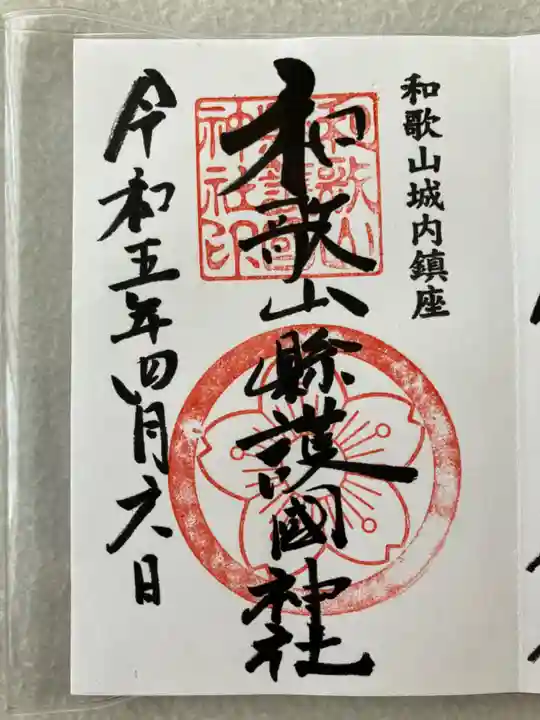 和歌山城内鎮座
和歌山縣護國神社
和歌山縣護國神社印
令和五年四月六日